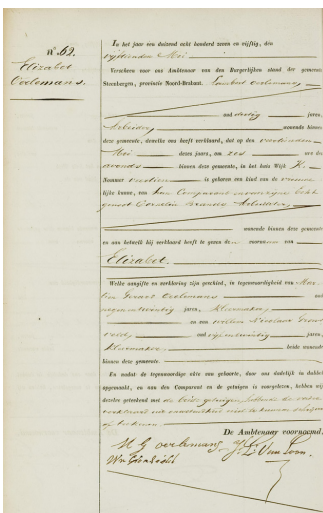 N.º 62.
Elizabet
Oerlemans.
In het jaar een duizend acht honderd zeven en vijftig, den
vijftienden Mei
Verscheen voor ons Ambtenaar van den Burgerlijken stand der gemeente
Steenbergen, provincie Noord-Brabant. Oerlemans,
oud dertig jaren,
Arbeider, wonende binnen
deze gemeente, dewelke ons heeft verklaard, dat op den veertienden
Mei dezes jaars, om zes ure des
avonds binnen deze gemeente, in het huis Wijk
Nummer is geboren een kind van de vrouwe-
lijke kunne, van hem Comparant en van zijne Echt-
genoot Cornelia
wonende binnen deze gemeente
en aan hetwelk hij verklaard heeft te geven den voornaam van
Elizabet.
Welke aangifte en verklaring zijn geschied, in tegenwoordigheid van Mar-
Oerlemans oud
jaren, Kleermaker,
en een Willem
oud jaren,
Kleermaker, beide wonende
binnen deze gemeente.
En nadat de tegenwoordige akte was geboorte, door ons dadelijk in dubbel
opgemaakt, en aan den Comparant en de getuigen is voorgelezen, hebben wij
dezelve geteekend met de beide getuigen, hebbende de vader
verklaard uit onkunde niet te kunnen schrijven
of teekenen.
De Ambtenaar voornoemd,
M G oerlemans J. L. Van Loon